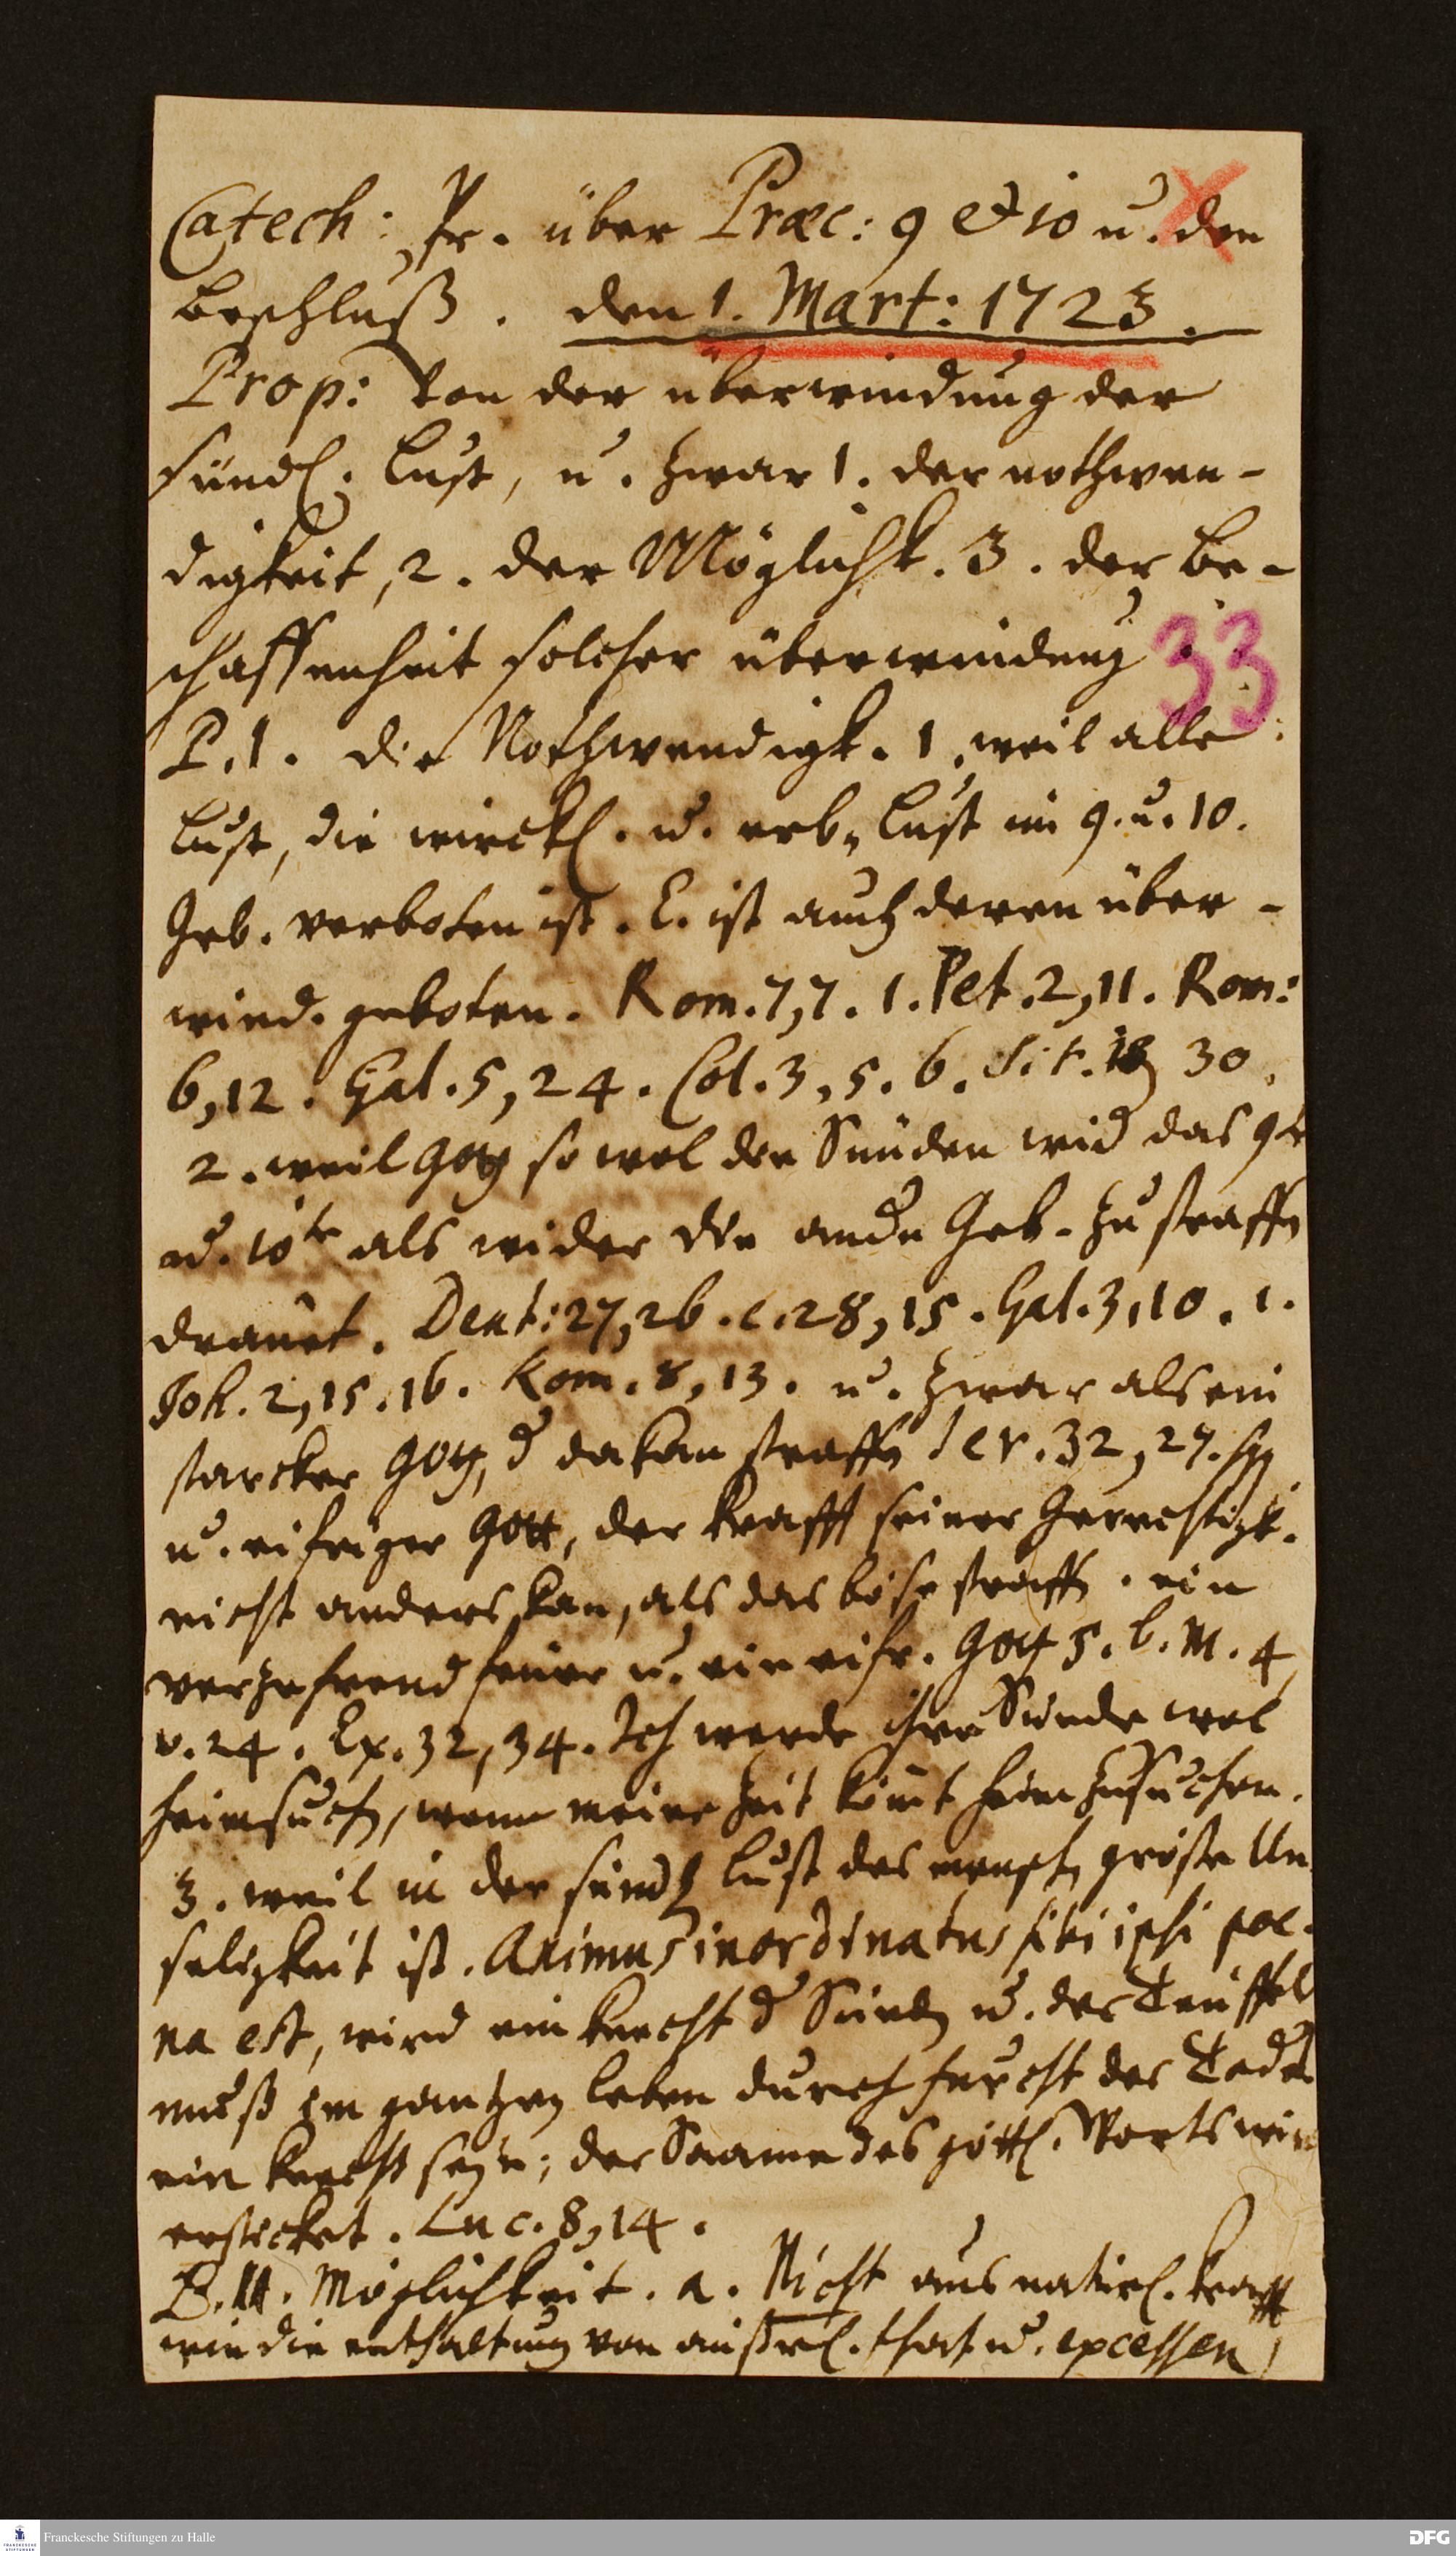 Catech: Pr. über Præc: 9 et 10 u. den
Beschluß. den 1. Mart: 1723.
Prop: Von der überwindung der
sündl. Lust, u. zwar 1. der nothwen-
digkeit, 2. der Möglichk. 3. der Be-
schaffenheit solcher überwindung.
33
P. 1. die Nothwendigk. 1. weil alle
Lust, die wirckl. u. erb-Lust im 9. u. 10.
Geb. verboten ist. E. ist auch deren über-
wind. geboten. Rom. 7, 7. 1. Pet. 2, 11. Rom:
6, 12. Gal. 5, 24. Col. 3, 5. 6. Sir. 18, 30.
2. weil Gott so wol den Sünden wid das 9te
u. 10te als wider die andn Geb. zu straffn
dräuet. Deut: 27, 26. c. 28, 15. Gal. 3, 10. 1.
Joh. 2, 15. 16. Rom. 8, 13. u. zwar als ein
starcker Gott, d da kan straffn Jer. 32, 27. sqq
u. eifriger Gott, der krafft seiner Gerechtigk.
nicht anders kan, als das böse straffn. ein
verzehrend feuer u. ein eifr. Gott 5. B. M. 4,
v. 24. Ex. 32, 34. Ich werde ihre Sünde wol
heimsuchn, wenn meine Zeit kömt heimzusuchen.
3. weil in der sündl Lust des menschn gröste Un
seligkeit ist. Animus inordinatus sibi ipsi poe-
na est, wird ein knecht d Sündn u. des Teuffels
muß im gantzen leben durch furcht des Todes
ein knecht seyn; der Saame des göttl. Worts wird
ersticket. Luc. 8, 14.
P. II. Möglichkeit. a. Nicht aus natürl. krafft
wie die enthaltung von äußerl. that u. excessen
Franckesche Stiftungen zu Halle
DFG